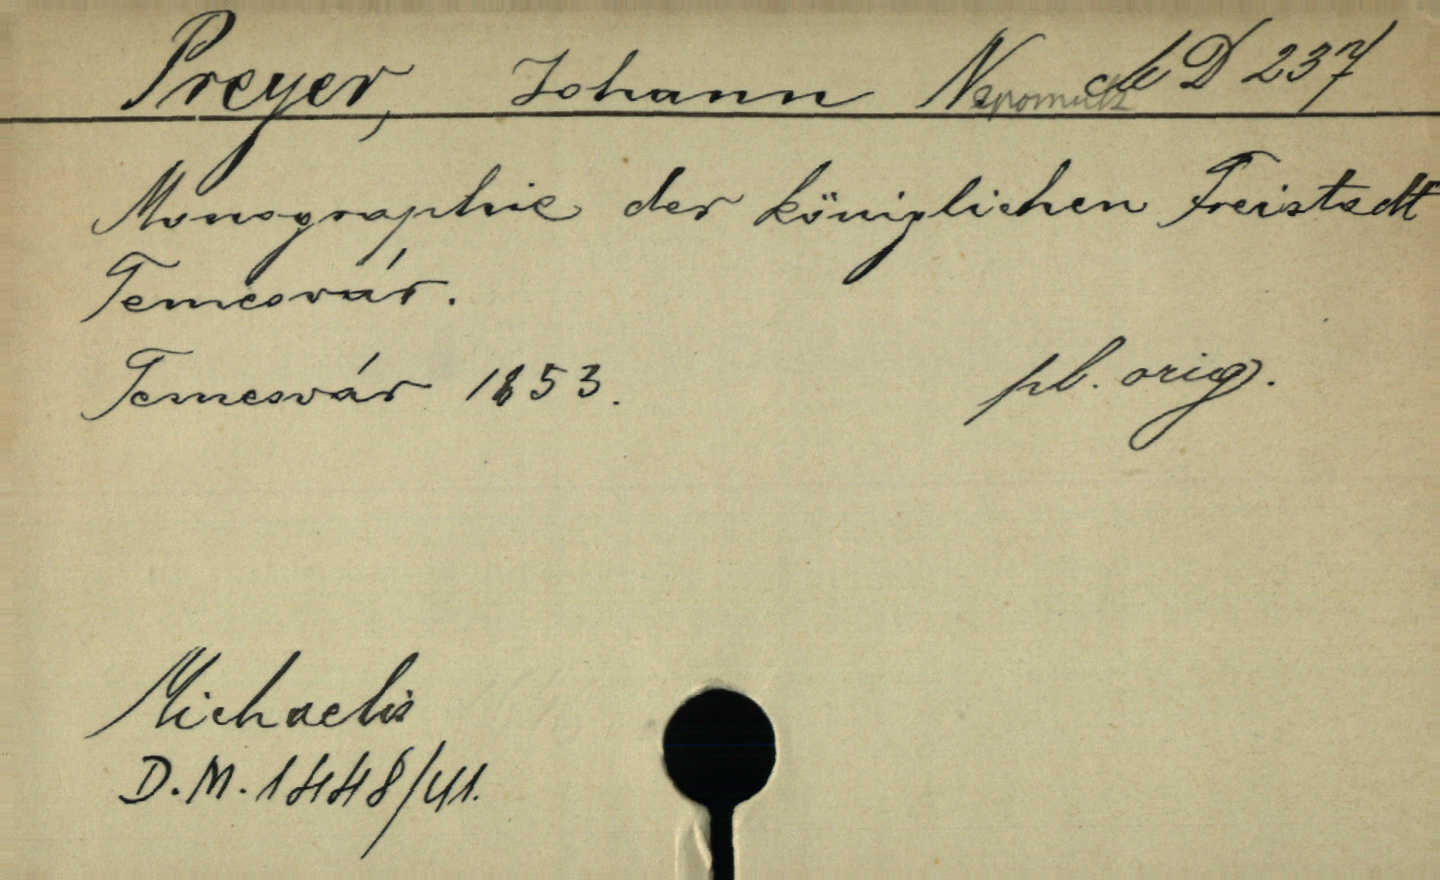 Preyer, Johann Nepomuk D 237
Monographie der königlichen Freistadt
Temesvár.
Temesvár 1853. pl. orig.
Michaelis
D.M. 1448/41.